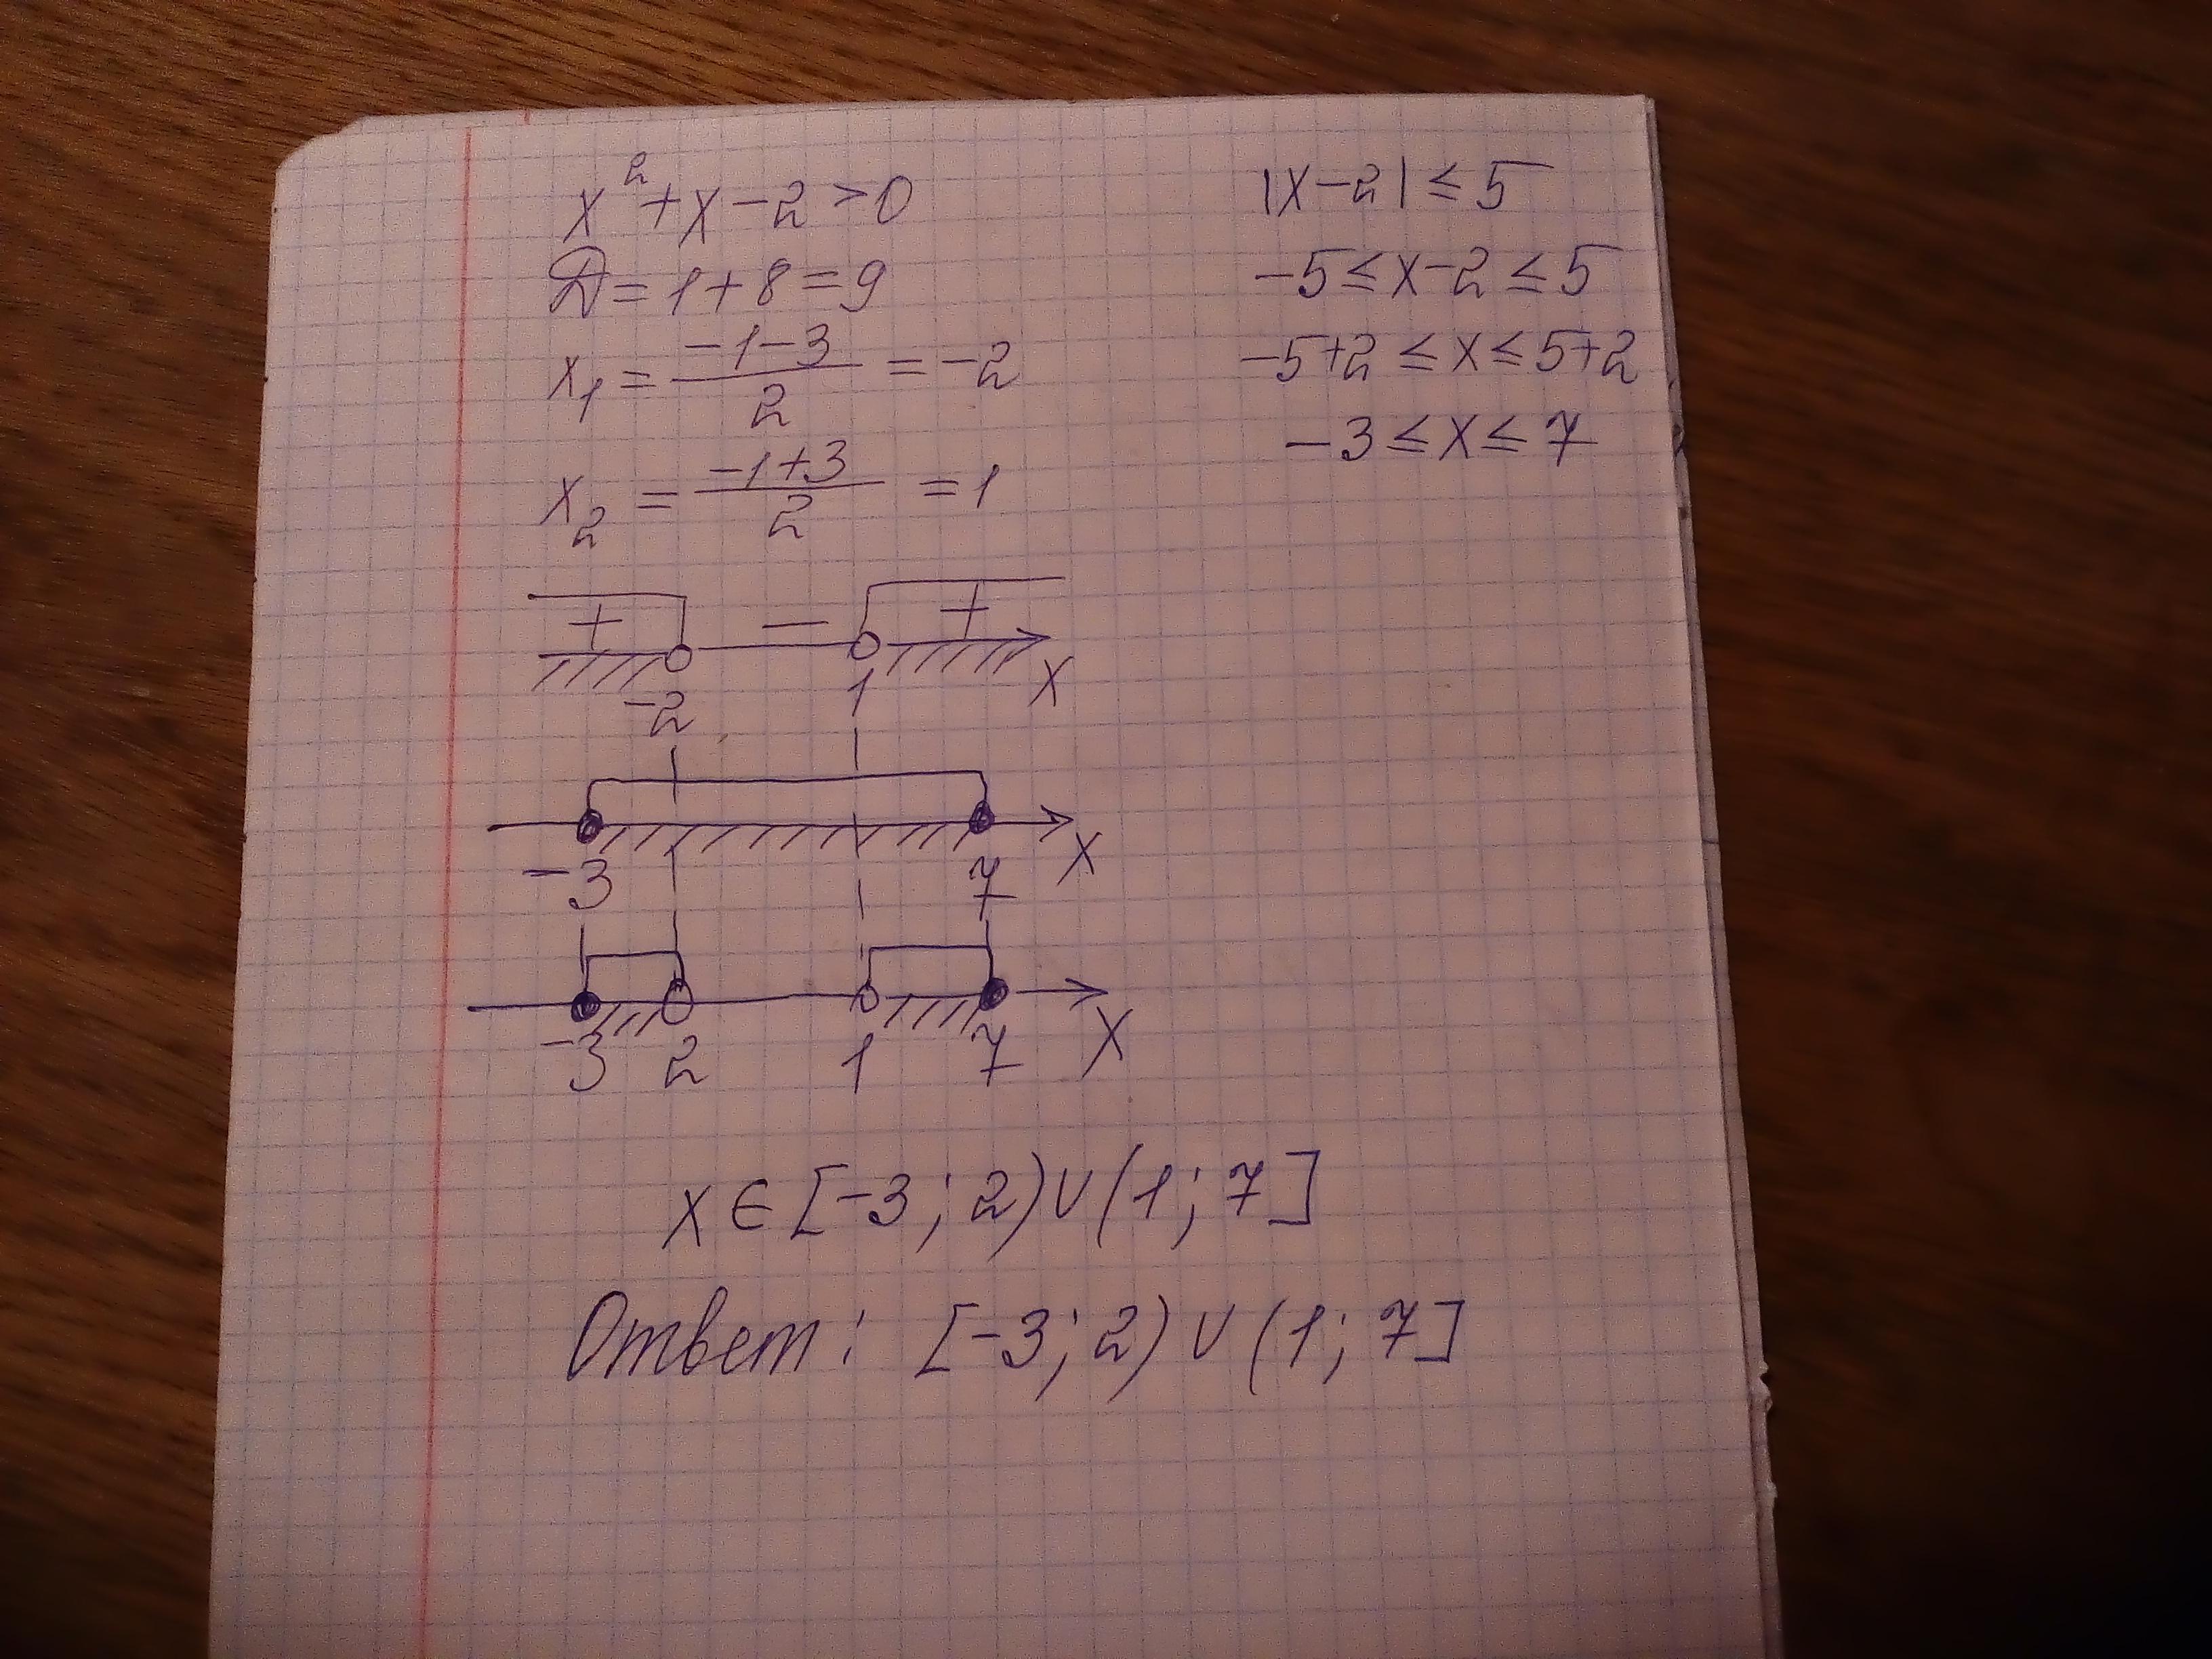 x² + x − 2 > 0
D = 1 + 8 = 9
x₁ = (−1−3)/2 = −2
x₂ = (−1+3)/2 = 1
|x−2| ≤ 5
−5 ≤ x−2 ≤ 5
−5+2 ≤ x ≤ 5+2
−3 ≤ x ≤ 7
+ − +
−2 1 x
−3 7 x
−3 2 1 7 x
x ∈ [−3; 2) ∪ (1; 7]
Ответ: [−3; 2) ∪ (1; 7]